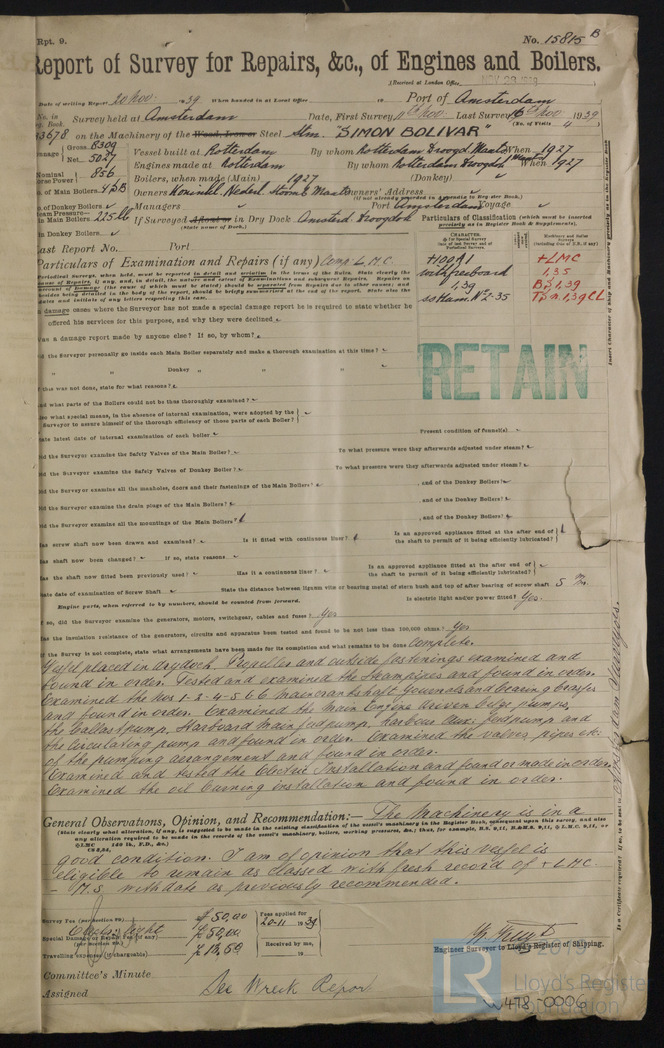 Rpt. 9.
No. 15815 B
Report of Survey for Repairs, &c., of Engines and Boilers.
(Received at London Office NOV 29 1939
Date of writing Report 20 Nov. 1939 When handed in at Local Office 19 Port of Amsterdam
No. in Survey held at Amsterdam Date, First Survey 11th Nov Last Survey 16th Nov 1939
Book. (No. of Visits 4)
3678 on the Machinery of the Wood, Iron or Steel "SIMON BOLIVAR"
Gross 8309
Net 5027
Vessel built at Rotterdam By whom Rotterdam Droogd. Maats When 1927
Nominal Horse Power 856 Engines made at Rotterdam By whom Rotterdam Droogdok When 1927
No. of Main Boilers Boilers, when made (Main) 1927 (Donkey)
Owners Koninkl. Nederl. Stoomb. Maats Owners' Address
(If not already recorded in Appendix to Register Book.)
No. of Donkey Boilers Managers Port Amsterdam Voyage
Steam Pressure in Main Boilers 225 lb If Surveyed Afloat or in Dry Dock Amsterd. Droogdok
(State name of Dock.)
in Donkey Boilers
Particulars of Classification (which must be inserted precisely as in Register Book & Supplements).
Last Report No. Port
Particulars of Examination and Repairs (if any) Comp. L.M.C.
+100A1
with freeboard
1,39
ss Ham. No 2-35
+LMC
1,35
BS 1,39
TS 1,39 CL
damage cases where the Surveyor has not made a special damage report he is required to state whether he
offered his services for this purpose, and why they were declined
Was a damage report made by anyone else? If so, by whom?
RETAIN
Did the Surveyor personally go inside each Main Boiler separately and make a thorough examination at this time?
" " Donkey " " "
If this was not done, state for what reasons?
And what parts of the Boilers could not be thus thoroughly examined?
Also what special means, in the absence of internal examination, were adopted by the
Surveyor to assure himself of the thorough efficiency of those parts of each Boiler?
State latest date of internal examination of each boiler Present condition of funnel(s)
Did the Surveyor examine the Safety Valves of the Main Boiler? To what pressure were they afterwards adjusted under steam?
Did the Surveyor examine the Safety Valves of Donkey Boiler? To what pressure were they afterwards adjusted under steam?
Did the Surveyor examine all the manholes, doors and their fastenings of the Main Boilers? , and of the Donkey Boilers?
Did the Surveyor examine the drain plugs of the Main Boilers? , and of the Donkey Boilers?
Did the Surveyor examine all the mountings of the Main Boilers? , and of the Donkey Boilers?
Has screw shaft now been drawn and examined? Is it fitted with continuous liner? Is an approved appliance fitted at the after end of
the shaft to permit of it being efficiently lubricated?
Has shaft now been changed? If so, state reasons
Has the shaft now fitted been previously used? Has it a continuous liner? Is an approved appliance fitted at the after end of
the shaft to permit of it being efficiently lubricated?
State date of examination of Screw Shaft State the distance between lignum vitæ or bearing metal of stern bush and top of after bearing of screw shaft 5
Engine parts, when referred to by numbers, should be counted from forward. Is electric light and/or power fitted? Yes.
If so, did the Surveyor examine the generators, motors, switchgear, cables and fuses? Yes
Has the insulation resistance of the generators, circuits and apparatus been tested and found to be not less than 100,000 ohms? Yes
If the Survey is not complete, state what arrangements have been made for its completion and what remains to be done Complete.
Vessel placed in drydock. Propeller and outside fastenings examined and
found in order. Tested and examined the steampipes and found in order.
Examined the Nos 1-2-4-5 & 6 main crankshaft journals and bearing brasses
and found in order. Examined the Main Engine driven bilge pumps,
the ballastpump, starboard main feedpump, harbour aux. feedpump and
the circulating pump and found in order. Examined the valves, pipes etc.
of the pumping arrangement and found in order.
Examined and tested the Electric Installation and found or made in order.
Examined the oil burning installation and found in order.
General Observations, Opinion, and Recommendation:— The Machinery is in a
(State clearly what alteration, if any, is suggested to be made in the existing classification of the vessel's machinery in the Register Book, consequent upon this survey, and also
any alteration required to be made in the records of the vessel's machinery, boilers, working pressures, &c.; thus, for example,
good condition. I am of opinion that this vessel is
eligible to remain as classed with fresh record of + LMC
- M.S. with date as previously recommended.
Survey Fee (per Section 29) £ 50,00
Fees applied for 20-11 1939
Special Damage or Repair Fee (if any) £ 50,00
Received by me,
19
Travelling expenses (if chargeable) £ 13,50
Engineer Surveyor to Lloyd's Register of Shipping.
Committee's Minute
Assigned See Wreck Report
LR
Lloyd's Register
Foundation
W478-0006